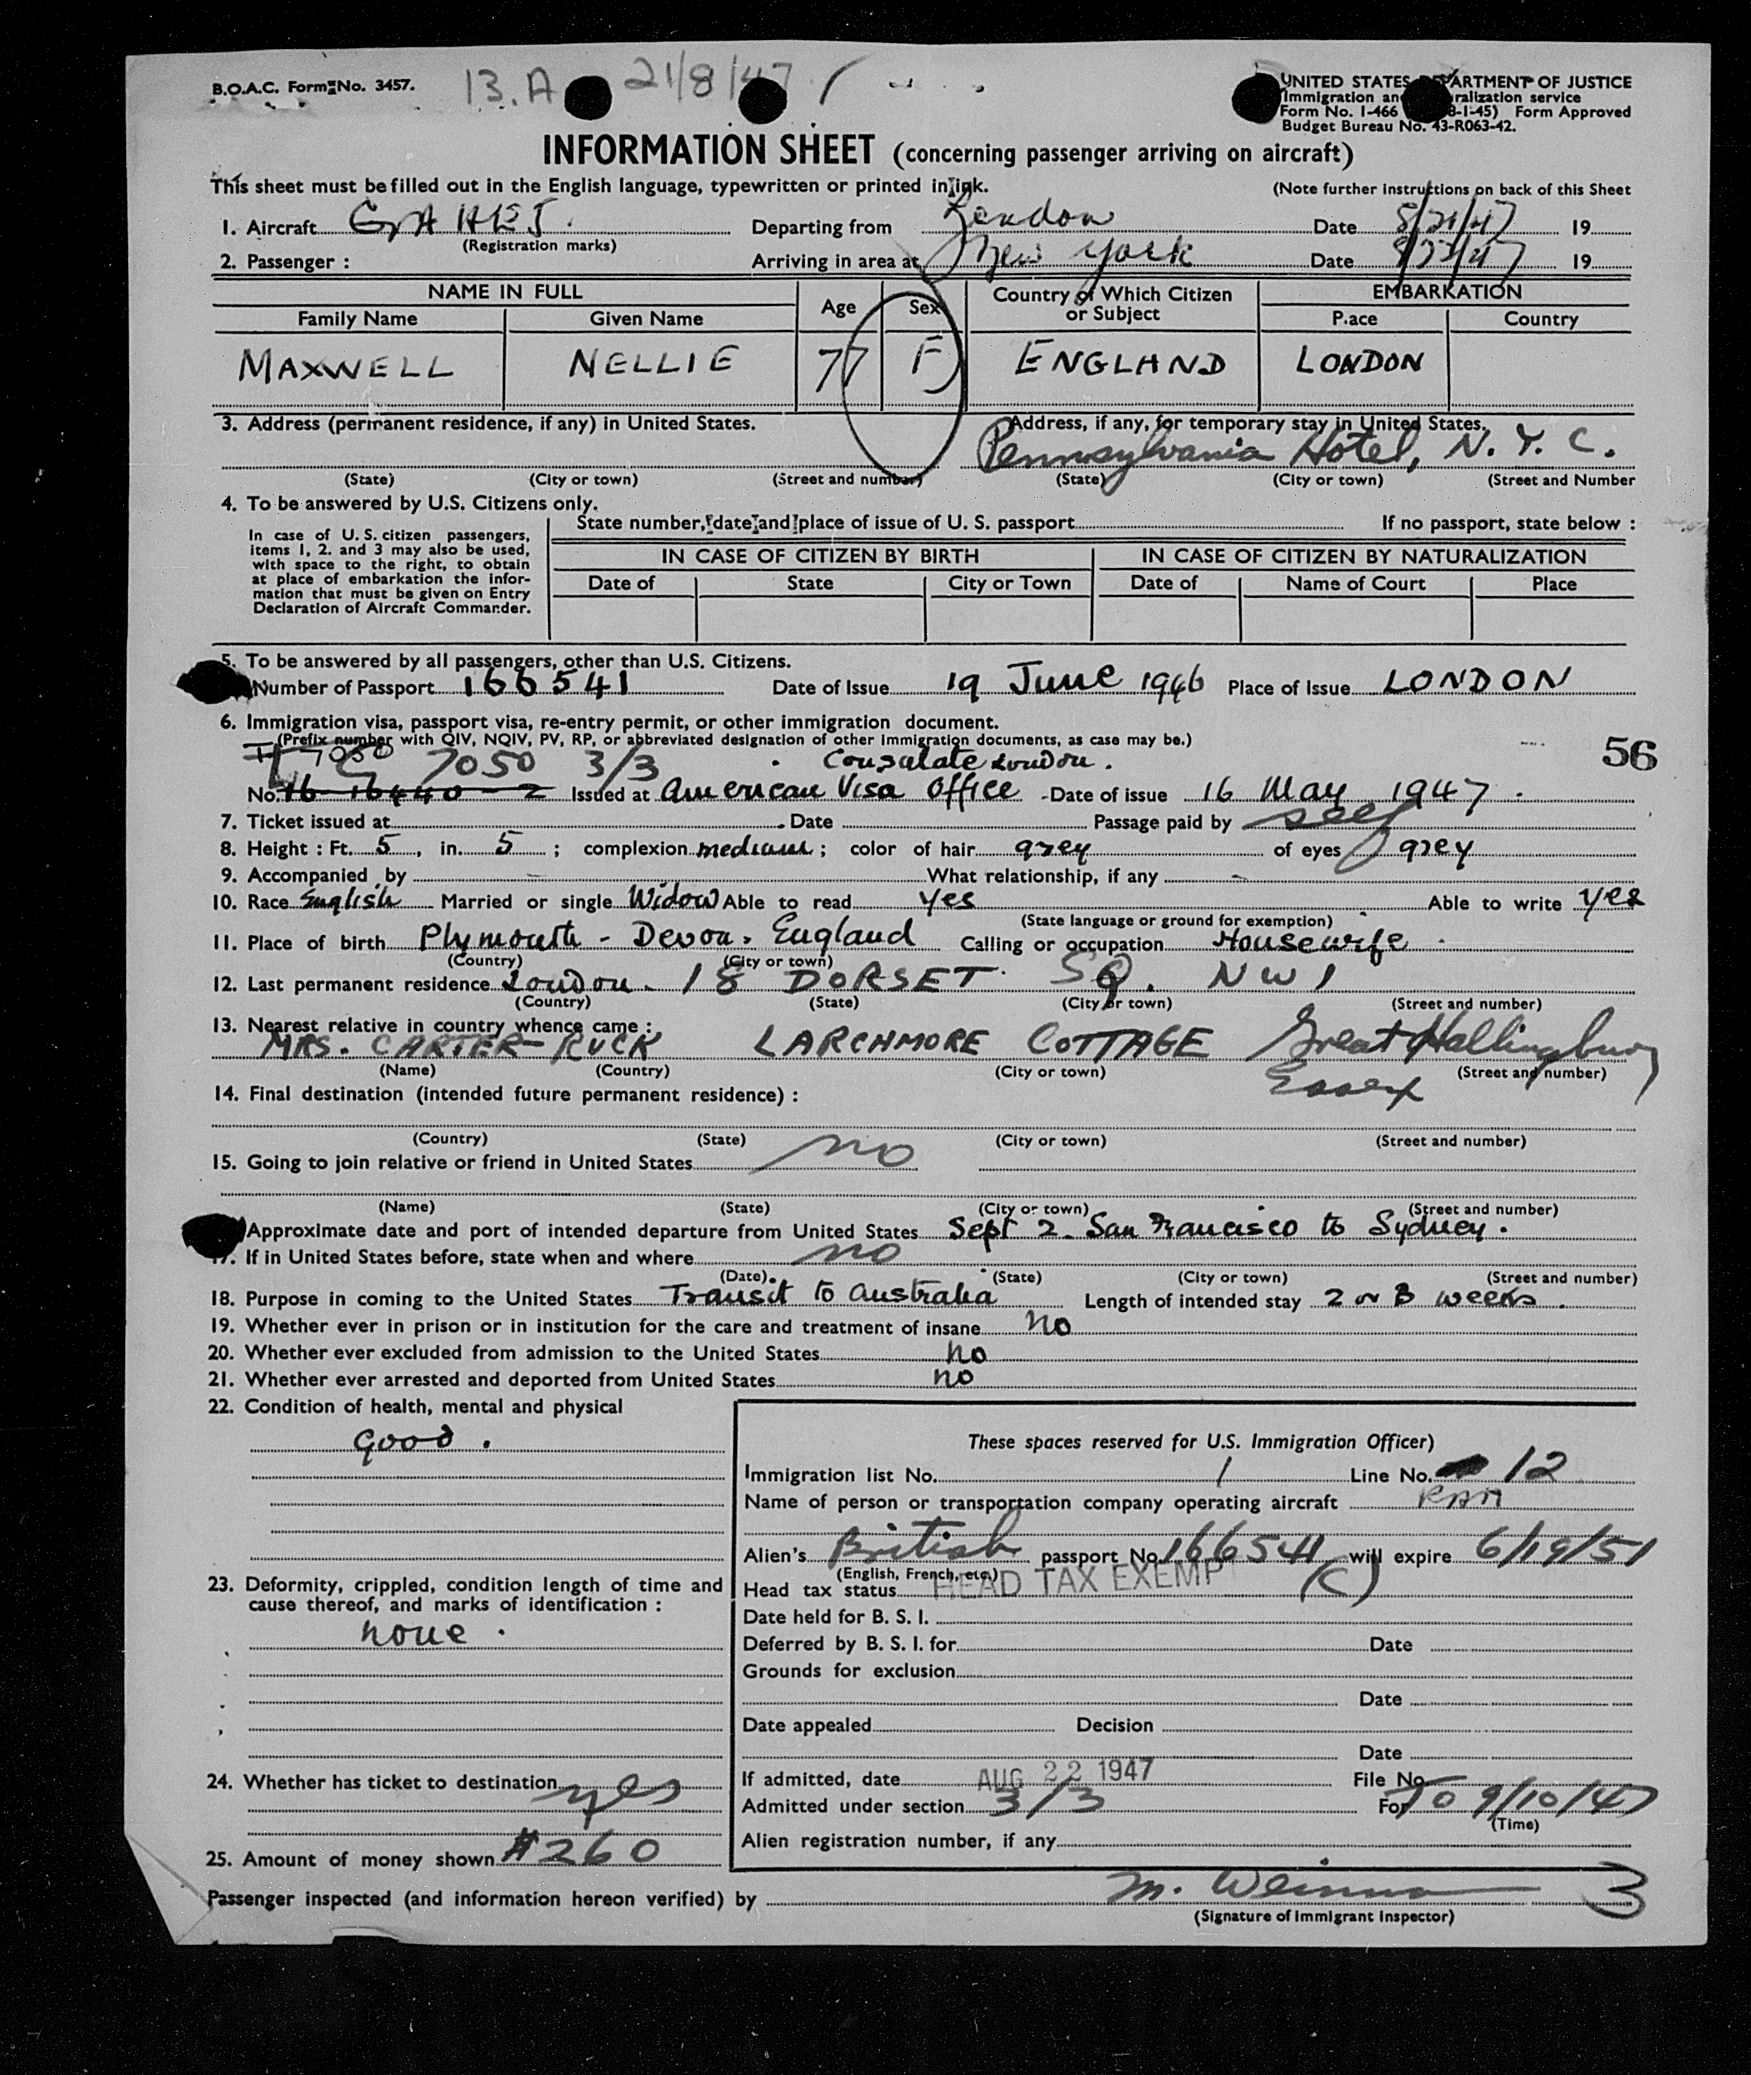 B.O.A.C. Form No. 3457. 13.A 21/8/47
UNITED STATES DEPARTMENT OF JUSTICE
Immigration and Naturalization service
Form No. I-466 8-1-45) Form Approved
Budget Bureau No. 43-R063-42.
INFORMATION SHEET (concerning passenger arriving on aircraft)
This sheet must be filled out in the English language, typewritten or printed in ink. (Note further instructions on back of this Sheet
1. Aircraft Departing from London Date 8/21/47 19
(Registration marks)
2. Passenger : Arriving in area at New York Date 19
NAME IN FULL Age Sex Country of Which Citizen or Subject EMBARKATION
Family Name Given Name Place Country
MAXWELL NELLIE 77 F ENGLAND LONDON
3. Address (permanent residence, if any) in United States. Address, if any, for temporary stay in United States.
Pennsylvania Hotel, N. Y. C.
(State) (City or town) (Street and number) (State) (City or town) (Street and Number
4. To be answered by U.S. Citizens only.
State number, date and place of issue of U. S. passport If no passport, state below :
In case of U. S. citizen passengers,
items 1, 2. and 3 may also be used,
with space to the right, to obtain
at place of embarkation the infor-
mation that must be given on Entry
Declaration of Aircraft Commander.
IN CASE OF CITIZEN BY BIRTH IN CASE OF CITIZEN BY NATURALIZATION
Date of State City or Town Date of Name of Court Place
5. To be answered by all passengers, other than U.S. Citizens.
Number of Passport 166541 Date of Issue 19 June 1946 Place of Issue LONDON
6. Immigration visa, passport visa, re-entry permit, or other immigration document.
(Prefix number with QIV, NQIV, PV, RP, or abbreviated designation of other immigration documents, as case may be.)
56
7050
7050 3/3 Consulate London.
No. 16-16440-2 Issued at American Visa Office Date of issue 16 May 1947.
7. Ticket issued at Date Passage paid by self
8. Height : Ft. 5, in. 5 ; complexion medium ; color of hair grey of eyes grey
9. Accompanied by - What relationship, if any -
10. Race English Married or single Widow Able to read yes Able to write yes
(State language or ground for exemption)
11. Place of birth Plymouth - Devon. England Calling or occupation Housewife
(Country) (City or town)
12. Last permanent residence London. 18 DORSET SQ. NW1
(Country) (State) (City or town) (Street and number)
13. Nearest relative in country whence came :
MRS. CARTER-RUCK LARCHMORE COTTAGE Great Hallingbury
(Name) (Country) (City or town) (Street and number)
Essex
14. Final destination (intended future permanent residence) :
(Country) (State) (City or town) (Street and number)
15. Going to join relative or friend in United States no
(Name) (State) (City or town) (Street and number)
Approximate date and port of intended departure from United States Sept 2. San Francisco to Sydney.
17. If in United States before, state when and where no
(Date) (State) (City or town) (Street and number)
18. Purpose in coming to the United States Transit to Australia Length of intended stay 2 or 3 weeks.
19. Whether ever in prison or in institution for the care and treatment of insane no
20. Whether ever excluded from admission to the United States no
21. Whether ever arrested and deported from United States no
22. Condition of health, mental and physical
good.
These spaces reserved for U.S. Immigration Officer)
Immigration list No. 1 Line No. 12
Name of person or transportation company operating aircraft
Alien's British passport No. 166541 will expire 6/19/51
(English, French, etc.)
Head tax status HEAD TAX EXEMPT (C)
23. Deformity, crippled, condition length of time and
cause thereof, and marks of identification :
none.
Date held for B. S. I.
Deferred by B. S. I. for Date
Grounds for exclusion
Date
Date appealed Decision
Date
24. Whether has ticket to destination yes
If admitted, date AUG 22 1947 File No.
Admitted under section 3/3 For To 9/10/47
(Time)
Alien registration number, if any
25. Amount of money shown $260
Passenger inspected (and information hereon verified) by 3
(Signature of Immigrant Inspector)